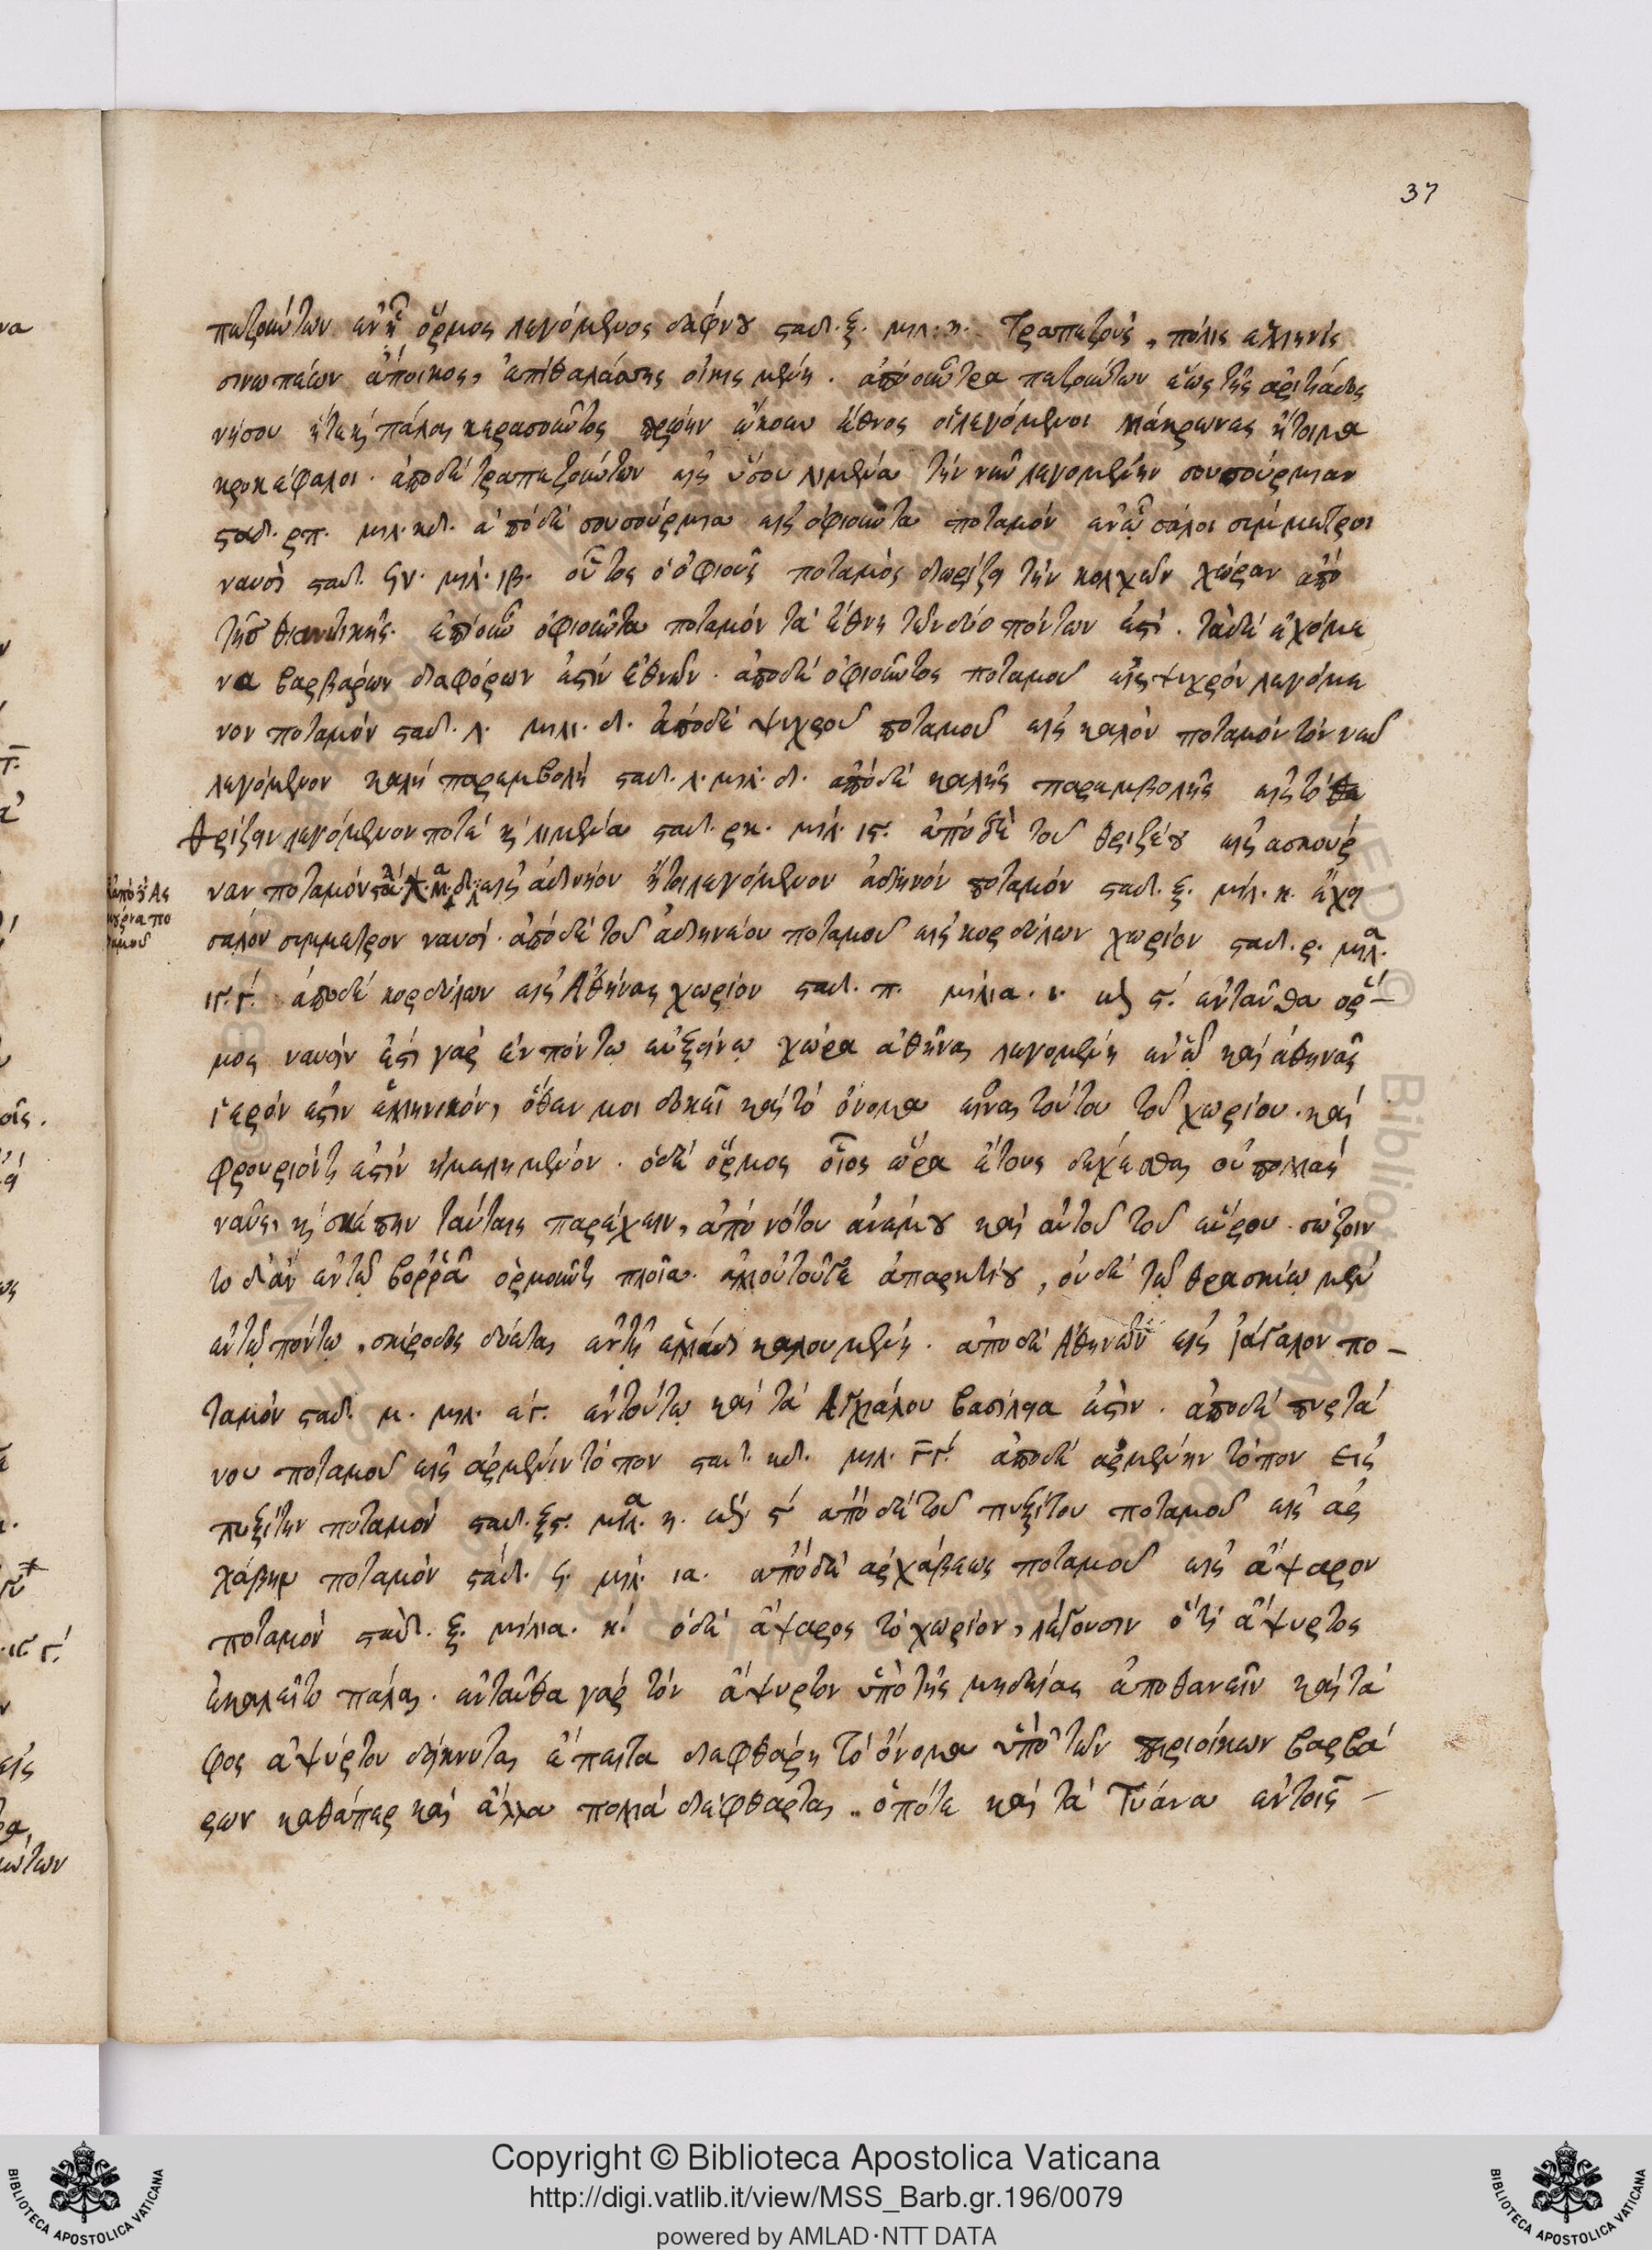 37
πεζούντων ἐν ᾗ ὅρμος λεγόμενος δαφνοῦ σταδ. ξ. μιλ. η. Τραπεζοὺς, πόλις ἑλληνὶς
σινωπέων ἄποικος, ἐπὶ θαλάσσης οἰκισμένη. ἀπὸ οὖν τραπεζούντων ἕως τῆς ἀριτιάδος
νήσου ἤτε καὶ πάλαι κερασοῦντος πρώην ᾤκουν ἔθνος οἱ λεγόμενοι Μάκρωνες ἤτοι μα
κροκέφαλοι. ἀπὸ δὲ τραπεζούντων εἰς ὕσου λιμένα τὴν νῦν λεγομένην σουσούρμεαν
σταδ. ρπ. μιλ. κδ. ἀπὸ δὲ σουσούρμεα εἰς ὀφιοῦντα ποταμόν ἐν ᾧ σάλοι σύμμετροι
ναυσὶ σταδ. ϟν. μιλ. ιβ. οὗτος ὁ ὀφιοῦς ποταμὸς διορίζει τὴν κολχῶν χώραν ἀπὸ
τῆς θιαννικῆς. ἐπὶ οὖν ὀφιοῦντα ποταμόν τὰ ἔθνη τῶν δύο πόντων ἐστί. τὰ δὲ ἐχόμε
να βαρβάρων διαφόρων ἐστὶν ἐθνῶν. ἀπὸ δὲ ὀφιοῦντος ποταμοῦ εἰς ψυχρόν λεγόμε
νον ποταμόν σταδ. λ. μιλ. δ. ἀπὸ δὲ ψυχροῦ ποταμοῦ εἰς καλὸν ποταμόν τὸν νῦν
λεγόμενον καλὴ παρεμβολή σταδ. λ. μιλ. δ. ἀπὸ δὲ καλῆς παρεμβολῆς εἰς τὸ
θρίζειν λεγόμενον ποτέ καὶ λιμένα σταδ. ρκ. μιλ. ις. ἀπὸ δὲ τοῦ θριζέου εἰς ασκούρ
ναν ποταμόν εἰς ἀδινέον ἤτοι λεγόμενον ἀδηνόν ποταμόν σταδ. ξ. μιλ. η. ἔχει
ἀπὸ δὲ Ας
κούρνα πο
ταμοῦ
σάλον σύμμετρον ναυσί. ἀπὸ δὲ τοῦ ἀδηναίου ποταμοῦ εἰς κορδύλων χωρίον σταδ. ρ. μιλ.
ιγ. γ΄. ἀπὸ δὲ κορδύλων εἰς Ἀθήνας χωρίον σταδ. π. μίλια. ι. ἐνταῦθα ὅρ-
μος ναυσίν ἐστι γὰρ ἐν πόντῳ εὐξείνῳ χώρα ἀθῆναι λεγομένη ἐν ᾧ καὶ ἀθηνᾶς
ἱερόν ἐστιν ἑλληνικόν, ὅθεν μοι δοκεῖ καὶ τὸ ὄνομα εἶναι τούτου τοῦ χωρίου. καὶ
φρουρίόν τι ἐστίν ἠμελημένον. ὁ δὲ ὅρμος οἷος ὥρα ἔτους δέχεσθαι οὐ πολλάς
ναῦς, καὶ σκέπην ταύταις παρέχειν, ἀπὸ νότου ἀνέμου καὶ αὐτοῦ τοῦ εὔρου. σώζοιν
το δ' ἂν ἐν τῷ βορρᾶ ὁρμοῦντι πλοῖα. ἀλλ' οὐ τοῦ γε ἀπαρκτίου, οὐδὲ τῷ θρασκίῳ μὲν
ἐν τῷ πόντῳ, σκίρωνος δύεται ἐν τῇ ἑλλάδι καλουμένη. ἀπὸ δὲ Ἀθηνῶν εἰς ζάγαλον πο-
ταμόν σταδ. μ. μιλ. εγ. ἐν τούτῳ καὶ τὰ Ἀγχιάλου βασίλεια ἐστιν. ἀπὸ δὲ πυρτά
νου ποταμοῦ εἰς ἀρμένιν τόπον σταδ. κδ. μιλ. γγ΄. ἀπὸ δὲ ἀρμένην τόπον εἰς
πυξίτην ποταμόν σταδ. ξς. μιλ. η. ἀπὸ δὲ τοῦ πυξίτου ποταμοῦ εἰς ἀρ
χάβην ποταμόν σταδ. ϟ. μιλ. ια. ἀπὸ δὲ ἀρχάβεως ποταμοῦ εἰς ἄψαρον
ποταμόν σταδ. ξ. μίλια. η. ὁ δὲ ἄψαρος τὸ χωρίον, λέγουσιν ὅτι ἄψυρτος
ἐκαλεῖτο πάλαι. ἐνταῦθα γὰρ τὸν ἄψυρτον ὑπὸ τῆς μηδείας ἀποθανεῖν καὶ τά
φος ἀψύρτου δείκνυται ἔπειτα διαφθάρη τὸ ὄνομα ὑπὸ τῶν περιοίκων βαρβά
ρων καθάπερ καὶ ἄλλα πολλὰ διέφθαρται.. ὁπότε καὶ τὰ Τύανα ἐν τοῖς -
Copyright © Biblioteca Apostolica Vaticana
http://digi.vatlib.it/view/MSS_Barb.gr.196/0079
powered by AMLAD·NTT DATA
BIBLIOTECA APOSTOLICA VATICANA
BIBLIOTECA APOSTOLICA VATICANA